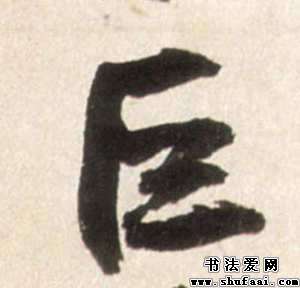 巨
书法爱网
www.shufaai.com